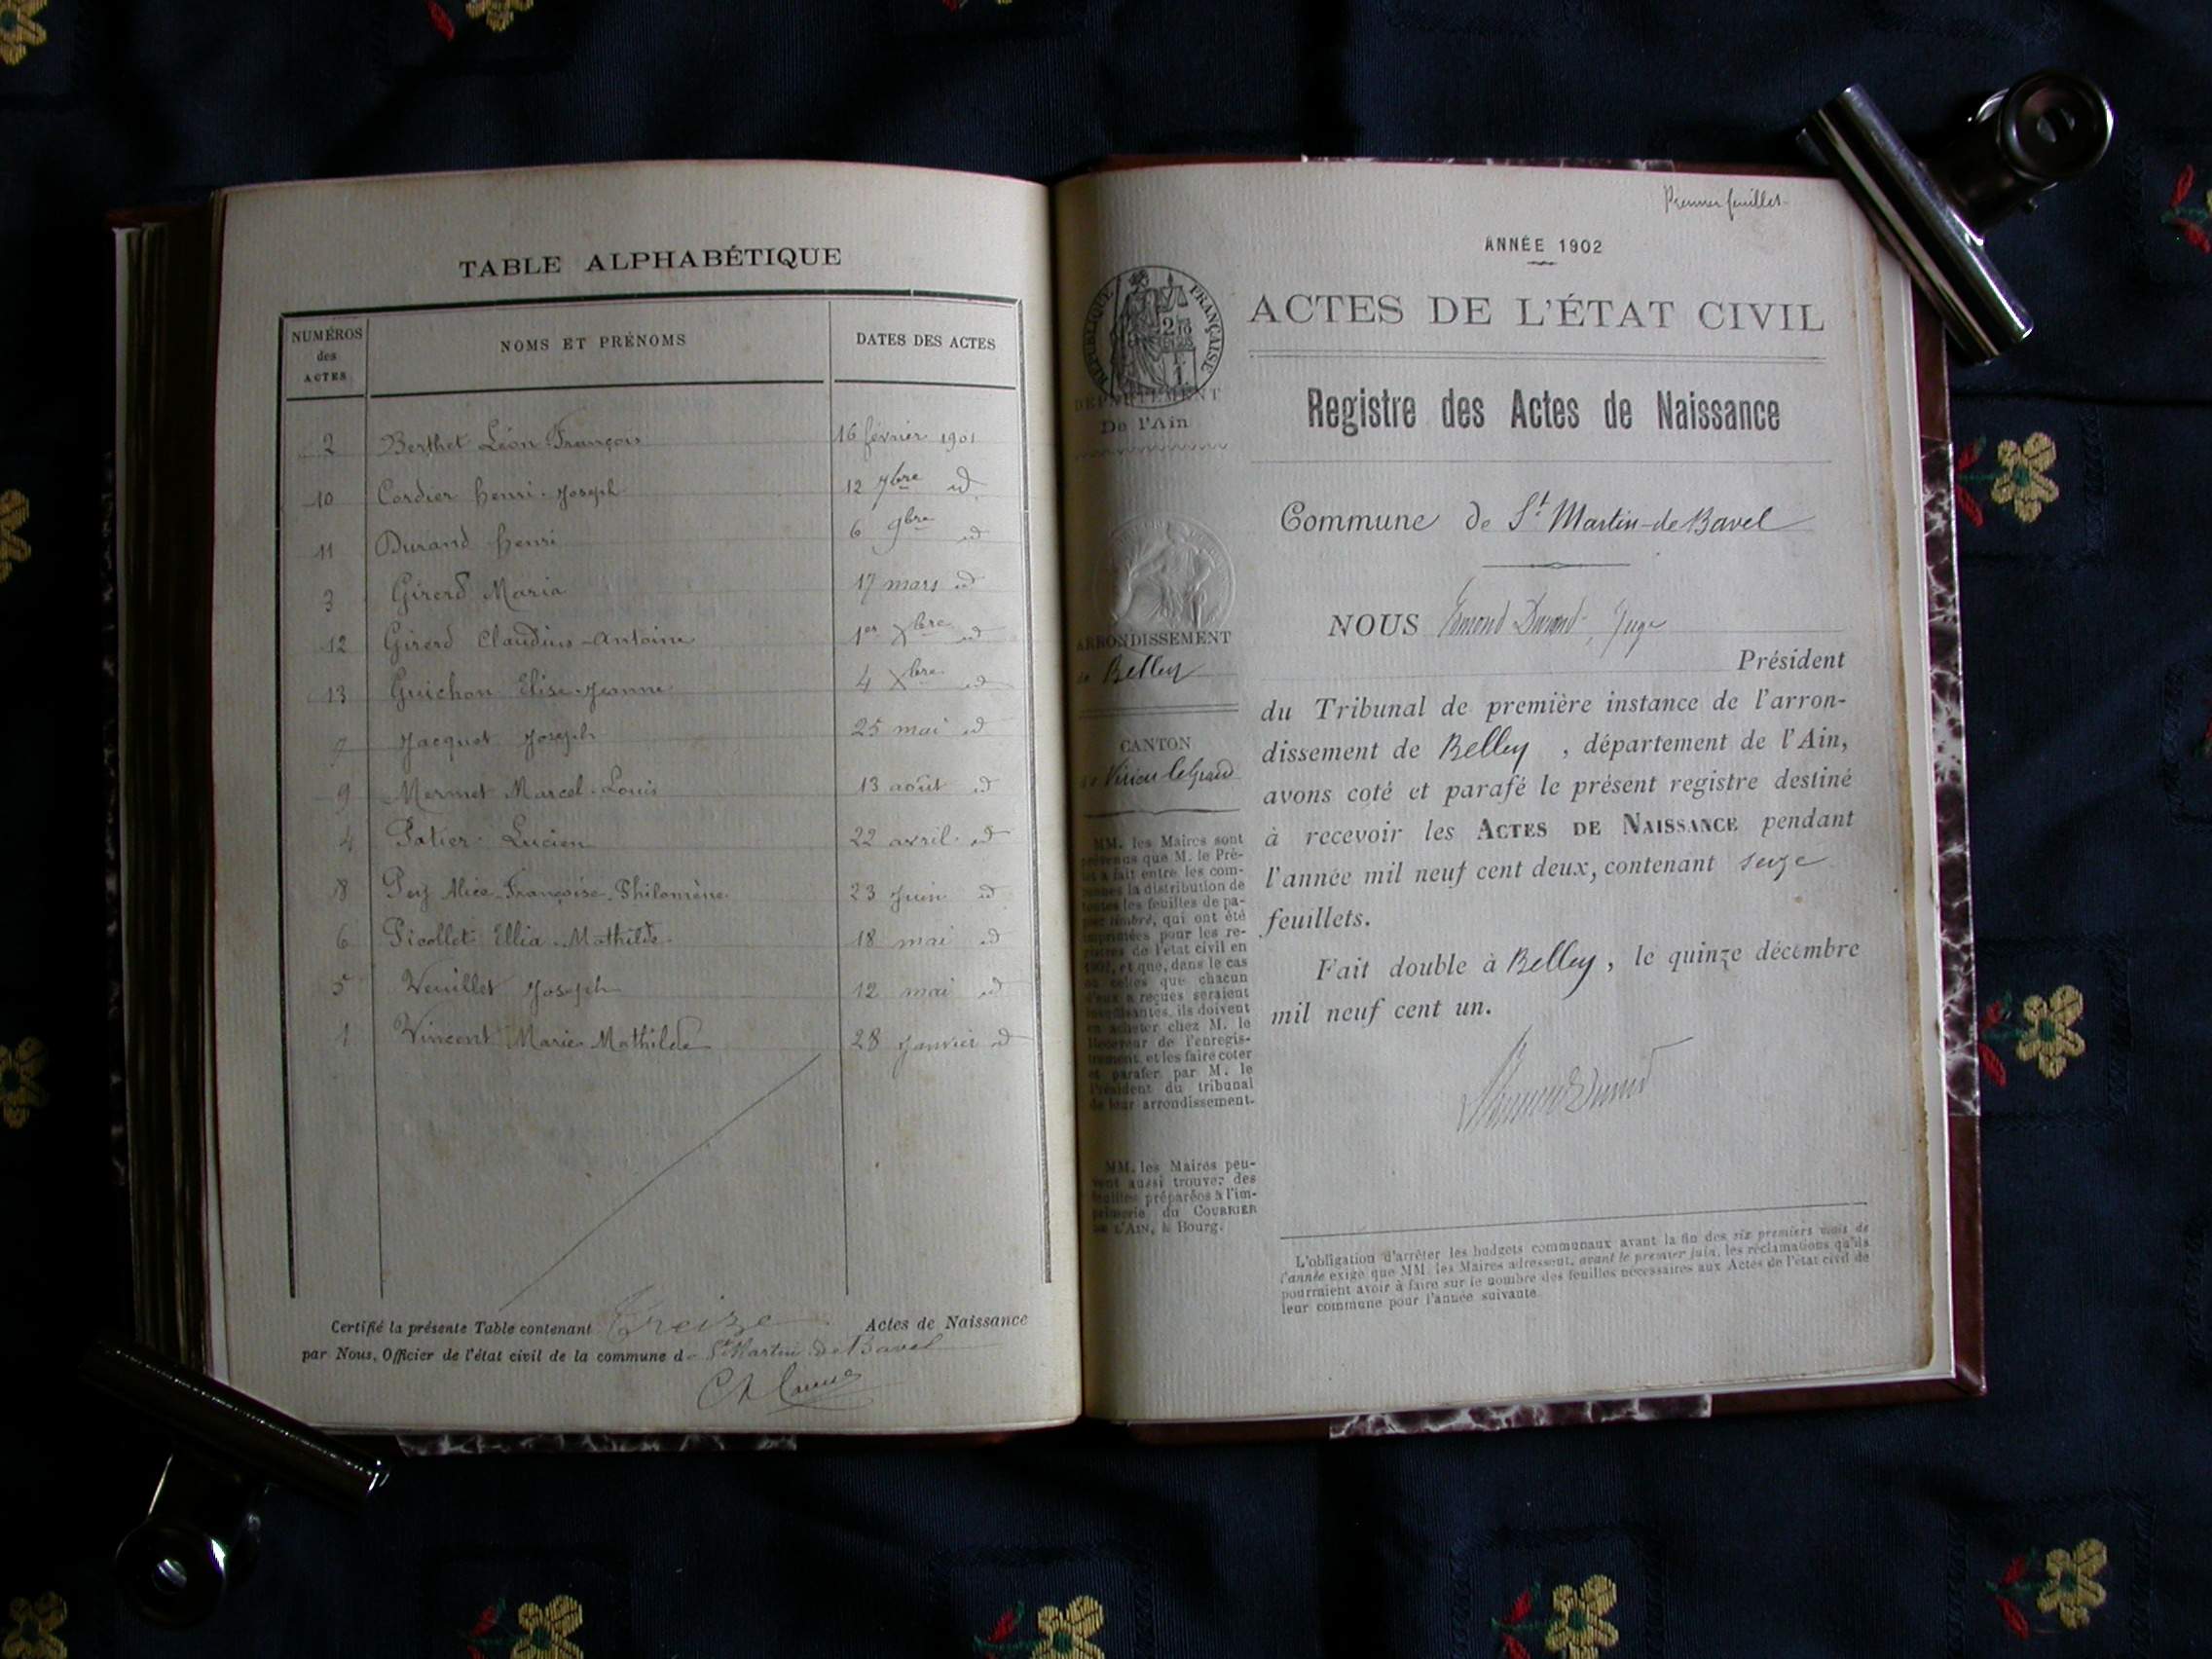 TABLE ALPHABÉTIQUE
NUMÉROS des ACTES
NOMS ET PRÉNOMS
DATES DES ACTES
2 Berthet Léon François 16 février 1901
10 Cordier henri Joseph 12 7bre id
11 Durand henri 6 9bre id
3 Girerd Maria 17 mars id
12 Girerd Claudius-Antoine 1er Xbre id
13 Guichon Elise-Jeanne 4 Xbre id
7 Jacquet Joseph 25 mai id
9 Mermet Marcel-Louis 13 août id
4 Patier Lucien 22 avril id
8 Pey Alice-Françoise-Philomène 23 Juin id
6 Picollet Ellia Mathilde 18 mai id
5 Veuillet Joseph 12 mai id
1 Vincent Marie Mathilde 28 Janvier id
Certifié la présente Table contenant Treize Actes de Naissance
par Nous, Officier de l'état civil de la commune de St Martin de Bavel
Premier feuillet
ANNÉE 1902
ACTES DE L'ÉTAT CIVIL
Registre des Actes de Naissance
Commune de St Martin-de-Bavel
NOUS Edmond Durand, Juge
Président
du Tribunal de première instance de l'arron-
dissement de Belley, département de l'Ain,
avons coté et parafé le présent registre destiné
à recevoir les ACTES DE NAISSANCE pendant
l'année mil neuf cent deux, contenant seize
feuillets.
Fait double à Belley, le quinze décembre
mil neuf cent un.
L'obligation d'arrêter les budgets communaux avant la fin des six premiers mois de
l'année exige que MM. les Maires adressent, avant le premier juin, les réclamations qu'ils
pourraient avoir à faire sur le nombre des feuilles nécessaires aux Actes de l'état civil de
leur commune pour l'année suivante.
RÉPUBLIQUE FRANÇAISE
DÉPARTEMENT
De l'Ain
ARRONDISSEMENT
de Belley
CANTON
de Virieu le Grand
MM. les Maires sont
prévenus que M. le Pré-
fet a fait entre les com-
munes la distribution de
toutes les feuilles de pa-
pier timbré, qui ont été
imprimées pour les re-
gistres de l'état civil en
1902, et que, dans le cas
où celles que chacun
d'eux a reçues seraient
insuffisantes, ils doivent
en acheter chez M. le
Receveur de l'enregis-
trement, et les faire coter
et parafer par M. le
Président du tribunal
de leur arrondissement.
MM. les Maires peu-
vent aussi trouver des
feuilles préparées à l'im-
primerie du COURRIER
DE L'AIN, à Bourg.